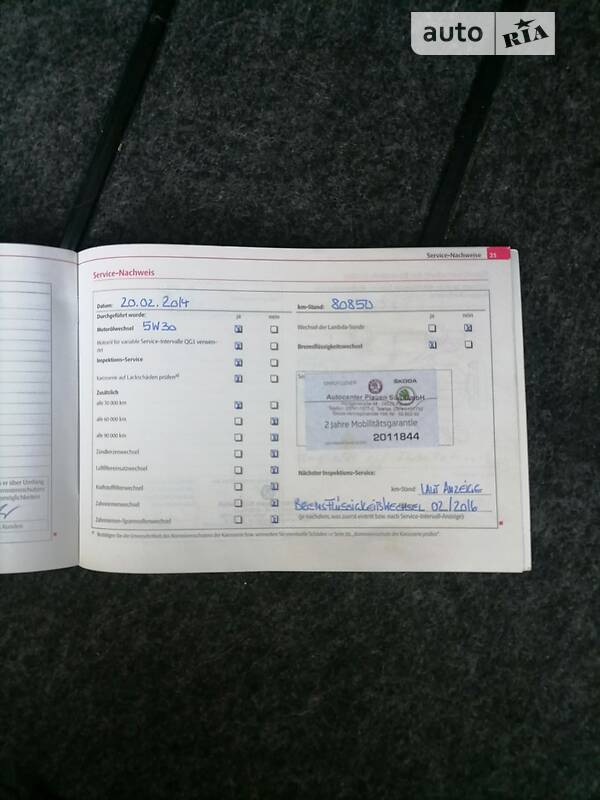 auto RIA
Service-Nachweise 21
Service-Nachweis
Datum: 20.02.2014
km-Stand: 80850
Durchgeführt wurde: ja nein
ja nein
Motorölwechsel 5W30
Wechsel der Lambda-Sonde
Motoröl für variable Service-Intervalle QG1 verwen-
det
Bremsflüssigkeitswechsel
Inspektions-Service
Karosserie auf Lackschäden prüfen
Zusätzlich
alle 30 000 km
alle 60 000 km
alle 90 000 km
Zündkerzenwechsel
Luftfiltereinsatzwechsel
Kraftstofffilterwechsel
Zahnriemenwechsel
Zahnriemen-Spannrollenwechsel
ŠKODA
Autocenter Plauen Süd GmbH
2 Jahre Mobilitätsgarantie
2011844
Nächster Inspektions-Service:
km-Stand: LAUT ANZEIGE
BREMSFLÜSSIGKEITSWECHSEL 02/2016
(je nachdem, was zuerst eintritt bzw. nach Service-Intervall-Anzeige)